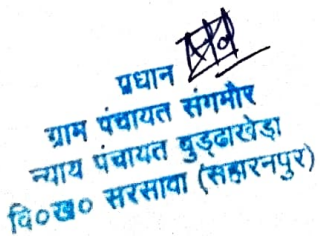 प्रधान
ग्राम पंचायत संगमौर
न्याय पंचायत बुड्ढाखेडा
वि०ख० सरसावा (सहारनपुर)